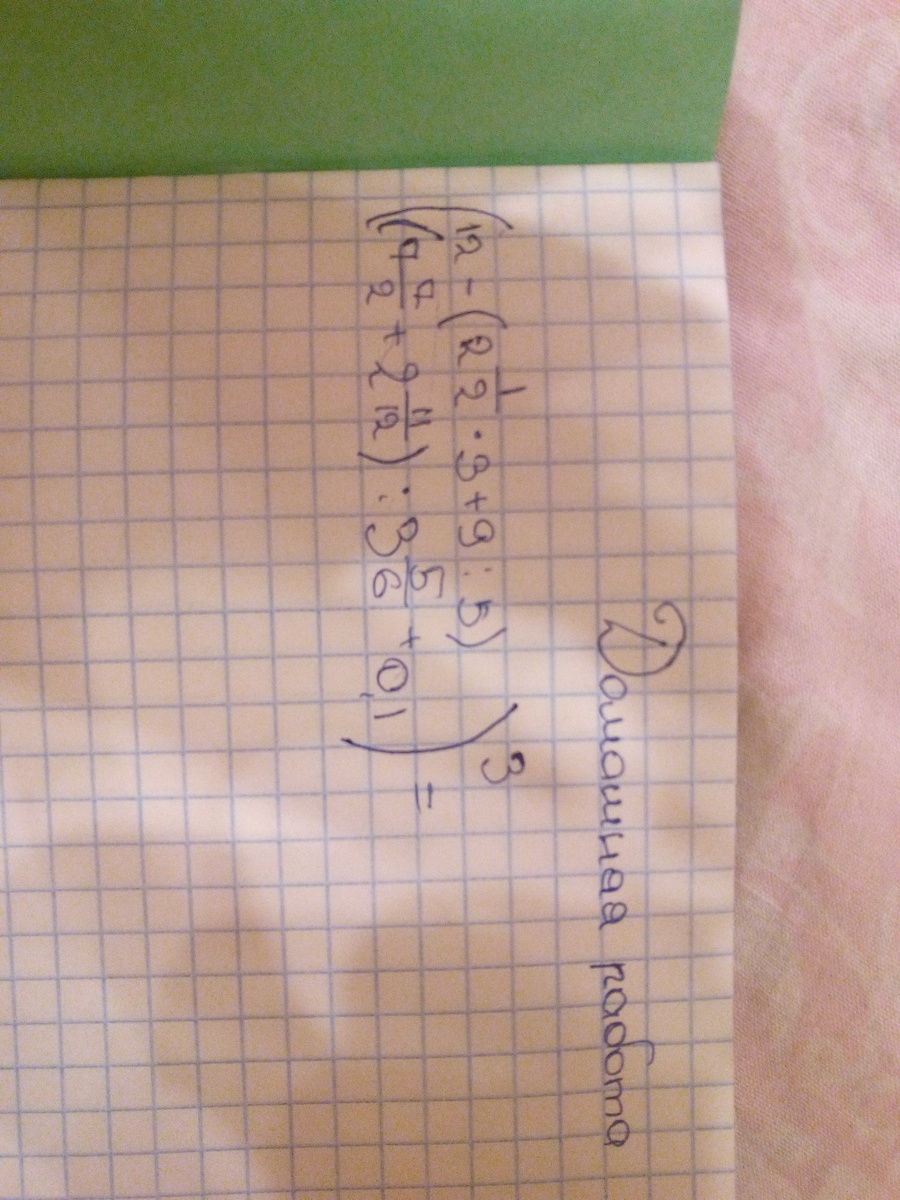 Домашняя работа
(12 - (2 1/2 · 3 + 9 : 5)
(7 7/2 + 2 11/12) : 3 5/6 + 0,1)³ =